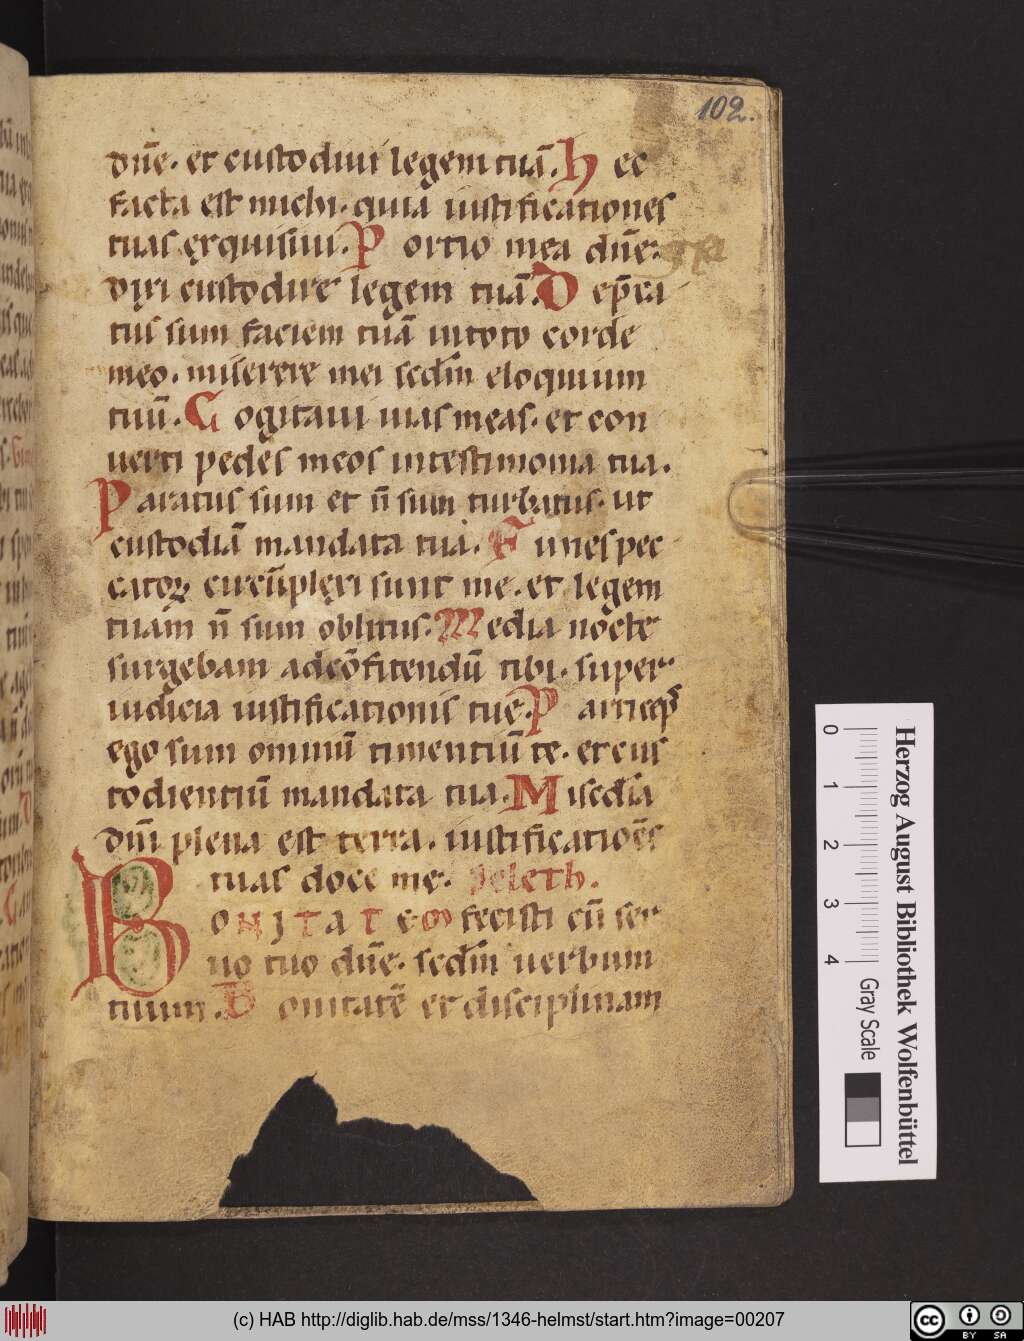 102.
dn̄e. et custodiui legem tuā. H ec
facta est michi. quia iustificationes
tuas ęxquisiui. P ortio mea dn̄e.
dixi custodire legem tuā. D ep̄ca
tus sum faciem tuā in toto corde
meo. miserere mei scd̄m eloquium
tuū. C ogitaui uias meas. et con
uerti pedes meos in testimonia tua.
P aratus sum et n̄ sum turbatus. ut
custodiā mandata tua. F unes pec
catoꝝ circūplexi sunt me. et legem
tuam n̄ sum oblitus. M edia nocte
surgebam ad cōfitendū tibi. super
iudicia iustificationis tuę. P articeps
ego sum omniū timentiū te. et cus
todientiū mandata tua. M isedīa
dn̄i plena est terra. iustificatiōes
tuas doce me. Heleth.
B O N I T A T E M fecisti cū ser
uo tuo dn̄e. scd̄m uerbum
tuum. B onitatē et disciplinam
Herzog August Bibliothek Wolfenbüttel
0 1 2 3 4 Gray Scale
(c) HAB http://diglib.hab.de/mss/1346-helmst/start.htm?image=00207
cc BY SA